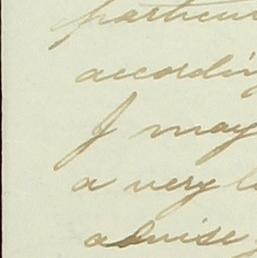 particu
accordin
I may
a very l
advise